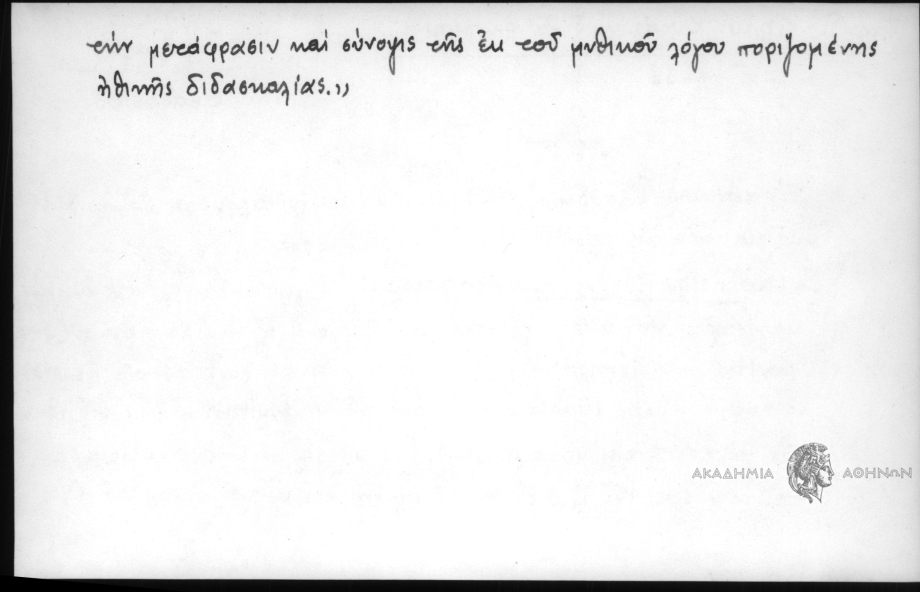 τήν μετάφρασιν καί σύνοψις τῆς ἐκ τοῦ μυθικοῦ λόγου ποριζομένης
ἠθικῆς διδασκαλίας.»
ΑΚΑΔΗΜΙΑ ΑΘΗΝΩΝ